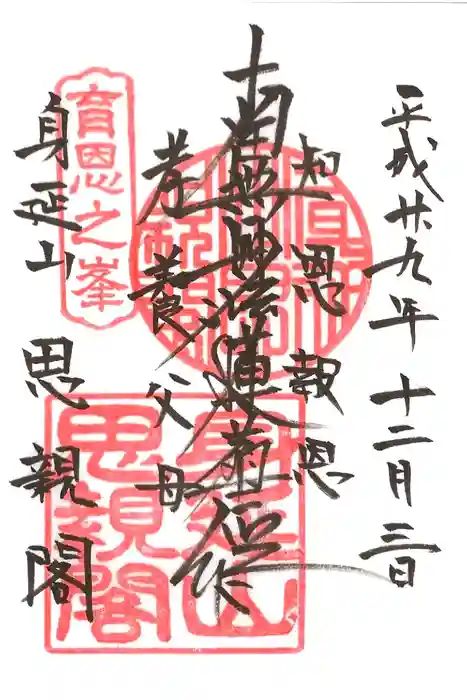 平成廿九年十二月三日
知恩報恩
南無妙法蓮華経
孝養父母
身延山 思親閣
育恩之峯
身延山
思親閣